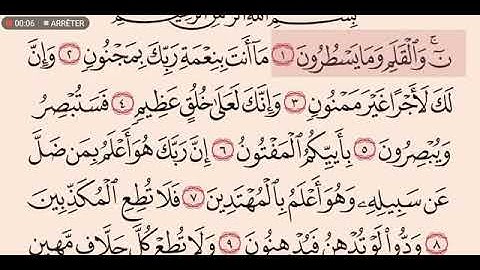 00:06 ARRÊTER
بِسْمِ اللَّهِ الرَّحْمَٰنِ الرَّحِيمِ
نٓ ۚ وَٱلْقَلَمِ وَمَا يَسْطُرُونَ ١ مَآ أَنتَ بِنِعْمَةِ رَبِّكَ بِمَجْنُونٍ ٢ وَإِنَّ
لَكَ لَأَجْرًا غَيْرَ مَمْنُونٍ ٣ وَإِنَّكَ لَعَلَىٰ خُلُقٍ عَظِيمٍ ٤ فَسَتُبْصِرُ
وَيُبْصِرُونَ ٥ بِأَييِّكُمُ ٱلْمَفْتُونُ ٦ إِنَّ رَبَّكَ هُوَ أَعْلَمُ بِمَن ضَلَّ
عَن سَبِيلِهِۦ وَهُوَ أَعْلَمُ بِٱلْمُهْتَدِينَ ٧ فَلَا تُطِعِ ٱلْمُكَذِّبِينَ
٨ وَدُّوا۟ لَوْ تُدْهِنُ فَيُدْهِنُونَ ٩ وَلَا تُطِعْ كُلَّ حَلَّافٍ مَّهِينٍ